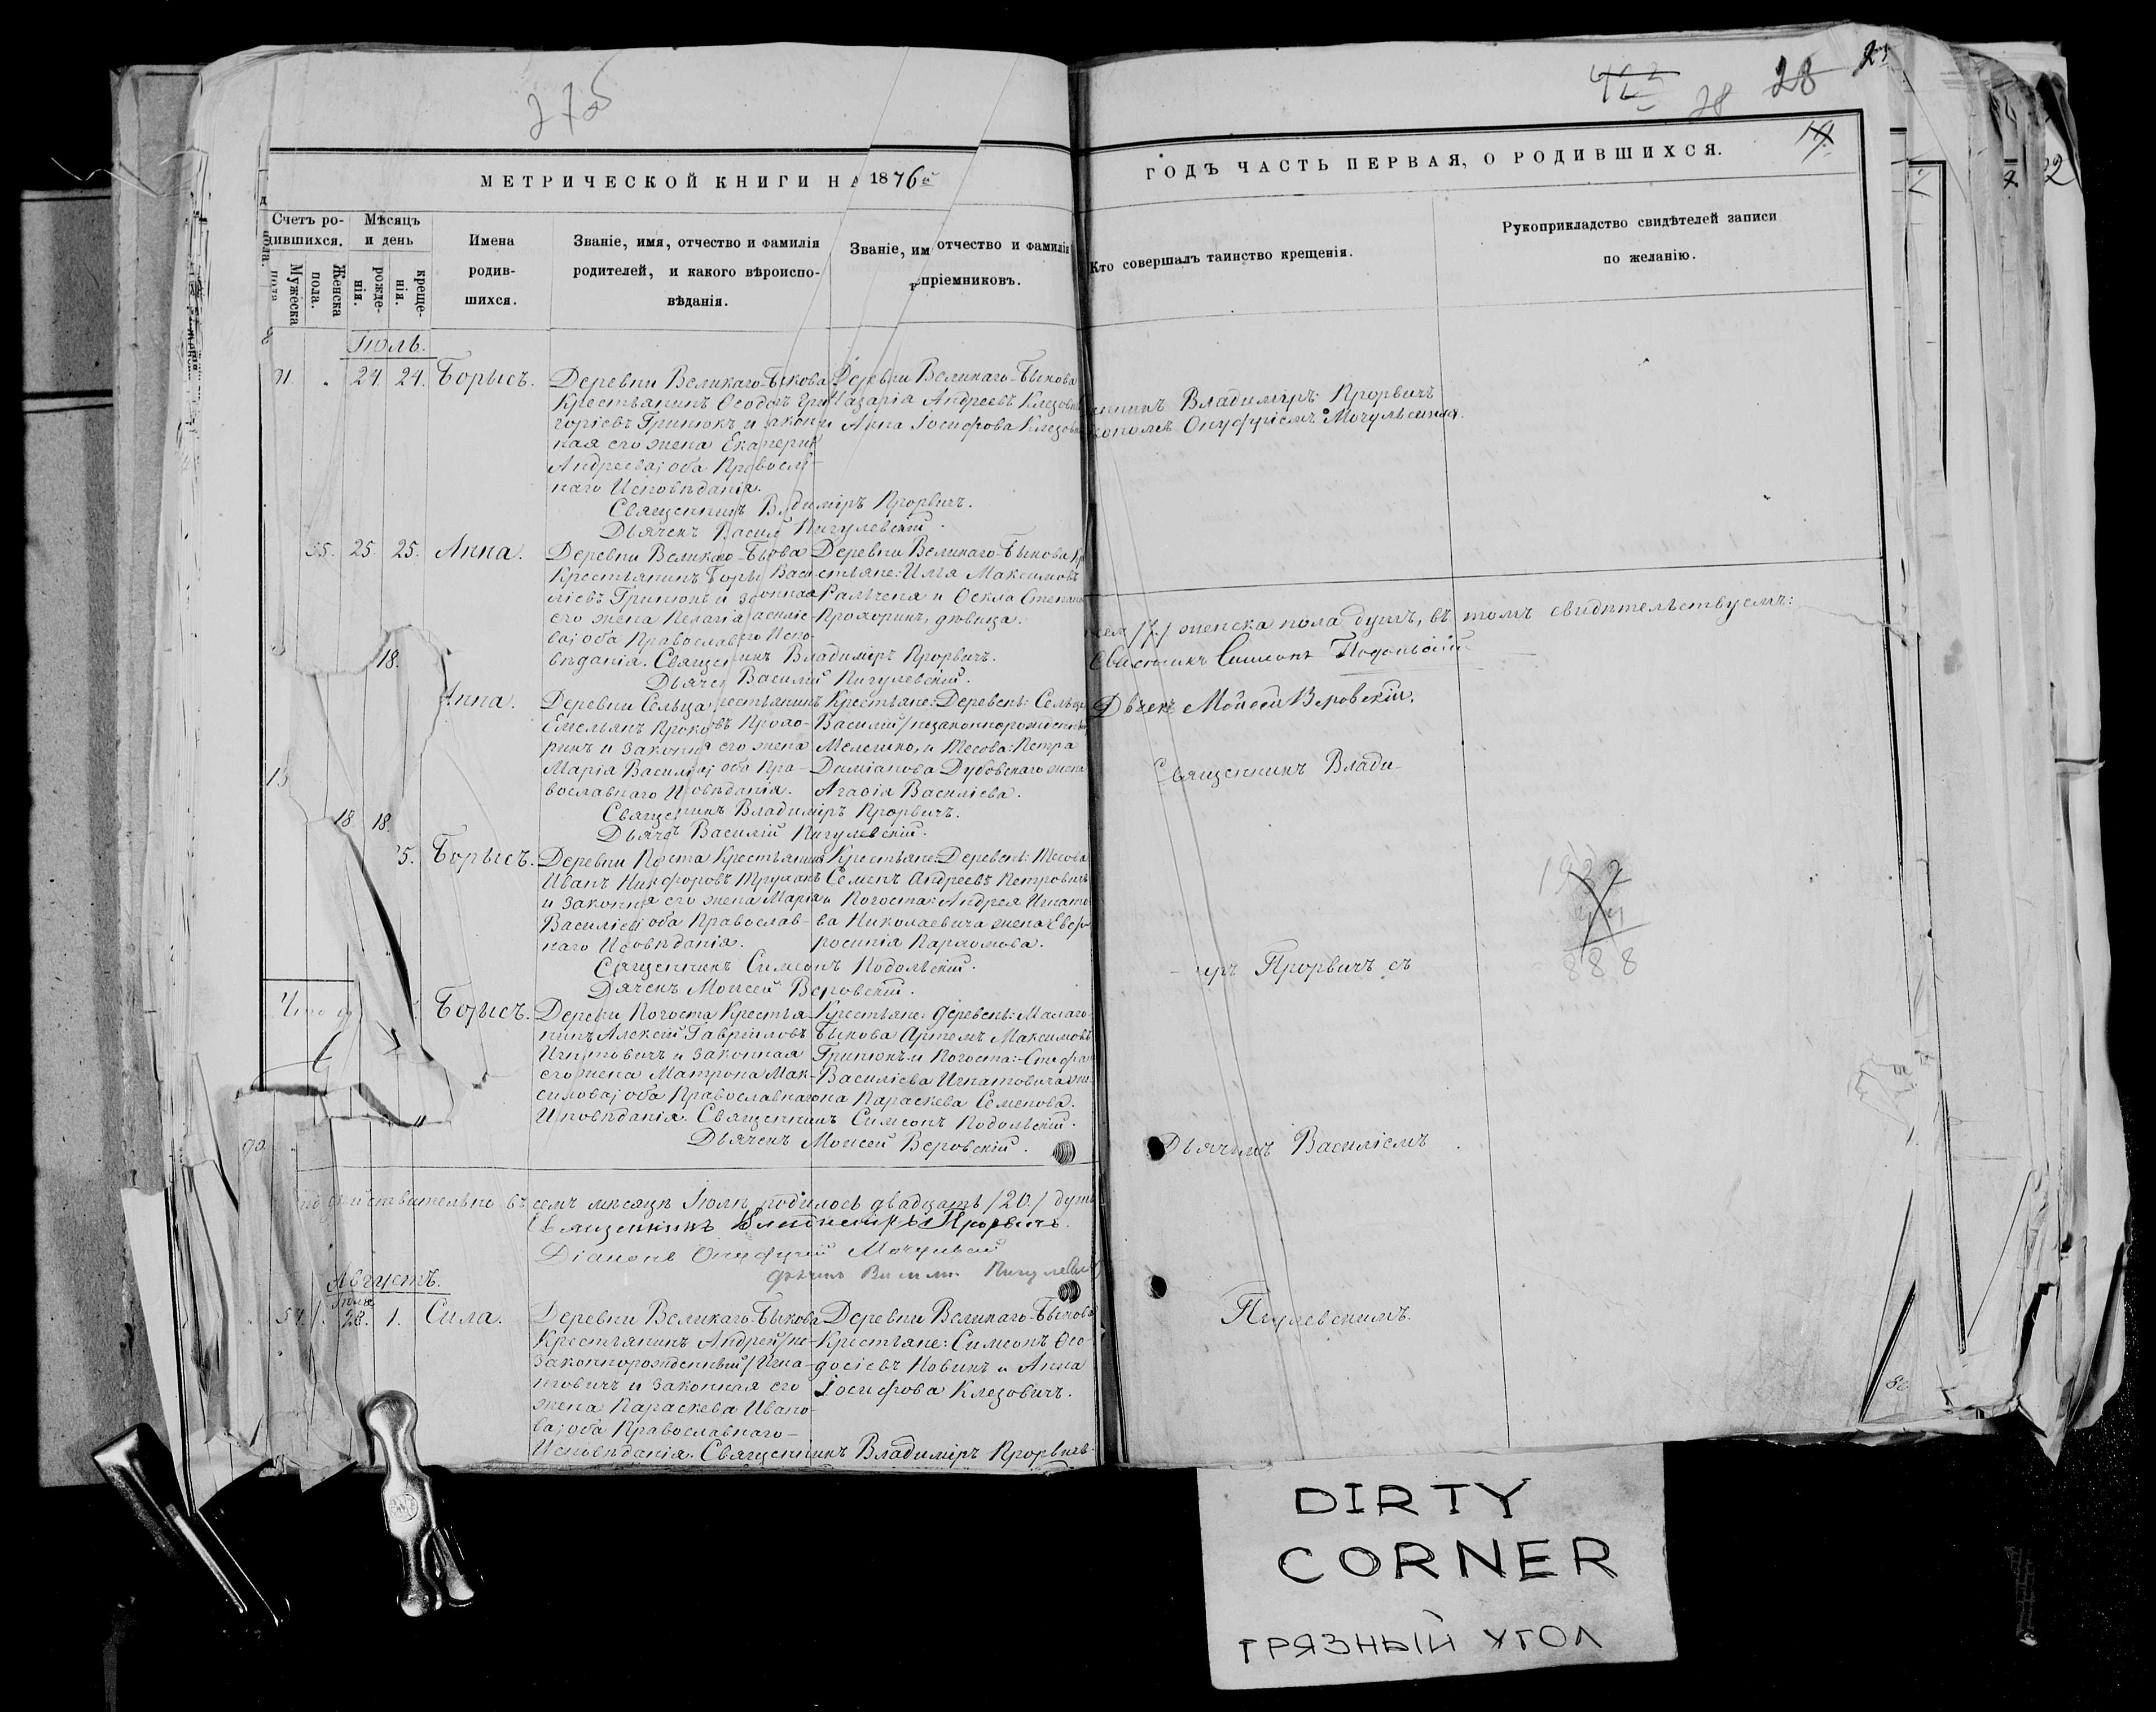 275
28
28
МЕТРИЧЕСКОЙ КНИГИ НА 1876й
ГОДЪ ЧАСТЬ ПЕРВАЯ, О РОДИВШИХСЯ.
Счетъ ро-
дившихся.
Мѣсяцъ
и день
Мужеска
пола.
Женска
пола.
рожде-
нія.
креще-
нія.
Имена
родив-
шихся.
Званіе, имя, отчество и фамилія
родителей, и какого вѣроиспо-
вѣданія.
Званіе, им отчество и фамилія
пріемниковъ.
Кто совершалъ таинство крещенія.
Рукоприкладство свидѣтелей записи
по желанію.
Іюль.
24. 24. Борисъ.
Деревни Великаго-Быкова
Крестьянинъ Ѳеодоръ Гри
горіевъ Гринюкъ и закон
ная его жена Екатерин
Андреева; оба Правосл-
наго Исповѣданія.
Священникъ Владиміръ Прорвичъ.
Дьячекъ Васил Пигулевскій.
Деревни Великаго-Быкова
Назарія Андреевъ Клезов
Анна Іосифова Клезов
Владиміръ Прорвичъ
Онуфріемъ Мочульскимъ.
35. 25. 25. Анна.
Деревни Великаго-Быкова
Крестьянинъ Бори Васи
ліевъ Гринюкъ и законная
его жена Пелагія Василіе
ва; оба Православнаго Испо-
вѣданія. Священникъ Владиміръ Прорвичъ.
Дьячек Василій Пигулевскій.
Деревни Великаго-Быкова Кр
стьяне: Илья Максимовъ
Ральченя и Ѳекла Степано
Прохоринъ, дѣвица.
18.
Анна.
Деревни Сельца Крестьянинъ
Емельянъ Прокоповъ Прохо-
ринъ и законная его жена
Марія Василіева; оба Пра-
вославнаго Исповѣданія.
Священникъ Владиміръ Прорвичъ.
Дьячекъ Василій Пигулевскій.
Крестьяне: Деревень: Сельца
Василій /незаконнорожденный
Мелешко, и Тесова: Петра
Даміанова Дубовскаго жена
Агаѳія Василіева.
18 18.
5. Борисъ.
Деревни Погоста Крестьянинъ
Иванъ Никифоровъ Труханъ
и законная его жена Марія
Василіева оба Православ-
наго Исповѣданія.
Священникъ Симеонъ Подольскій.
Дячекъ Моисей Веровскій.
Крестьяне: Деревень: Тесова
Семенъ Андреевъ Петровичъ
и Погоста: Андрея Игнато
ва Николаевича жена Евфр
росинія Пархомова.
Борисъ.
Деревни Погоста Крестья-
нинъ Алексій Гавріиловъ
Игнатовичъ и законная
его жена Матрона Мак-
симова; оба Православнаго
Исповѣданія. Священникъ Симеонъ Подольскій.
Дьячекъ Моисей Веровскій.
Крестьяне: деревень: Малаго-
Быкова Артемъ Максимовъ
Гринюкъ и Погоста: Стефан
Василіева Игнатовича же-
на Параскева Семенова.
90.
Что д
дѣйствительно въ семъ мѣсяцѣ Іюлѣ родилось двадцать /20./ душъ
Священникъ Владиміръ Прорвичъ.
Діаконъ Онуфрій Мочульскій
дячекъ Василій Пигулевскій
женска пола душъ, въ томъ свидѣтельствуемъ:
Священникъ Симеонъ Подольскій
Дьчекъ Моисей Веровскій.
Августъ.
Іюля
28. 1. Сила.
Деревни Великаго-Быкова
Крестьянинъ Андрей /не-
законнорожденный/ Игна-
товичъ и законная его
жена Параскева Ивано-
ва; оба Православнаго-
Исповѣданія. Священникъ Владиміръ Прорвичъ-
Деревни Великаго-Быкова
Крестьяне: Симеонъ Ѳео-
досіевъ Новикъ и Анна
Іосифова Клезовичъ.
Священникъ Влади-
міръ Прорвичъ съ
Дьячкомъ Василіемъ
Пигулевскимъ.
1932
888
DIRTY
CORNER
ГРЯЗНЫЙ УГОЛ